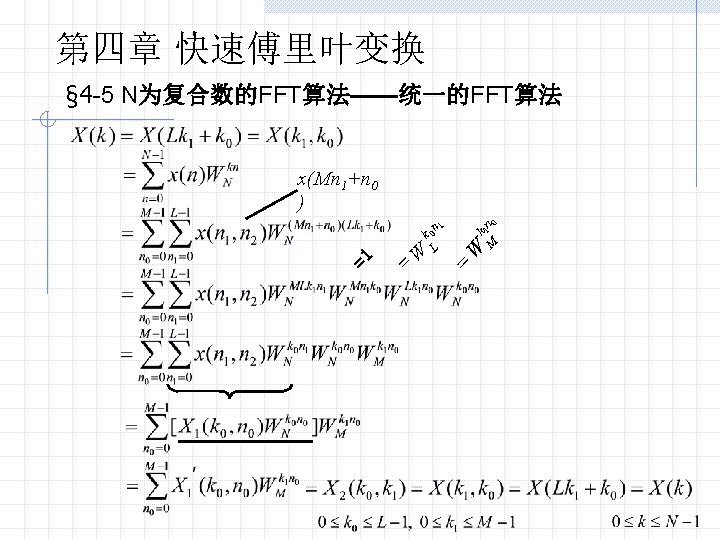 第四章 快速傅里叶变换
§4-5 N为复合数的FFT算法——统一的FFT算法
X(k) = X(Lk₁ + k₀) = X(k₁, k₀)
= ∑_{n=0}^{N−1} x(n)W_N^{kn}
x(Mn₁+n₀
)
= ∑_{n₀=0}^{M−1} ∑_{n₁=0}^{L−1} x(n₁, n₂)W_N^{(Mn₁+n₀)(Lk₁+k₀)}
=1 =W_L^{k₀n₁} =W_M^{k₁n₀}
= ∑_{n₀=0}^{M−1} ∑_{n₁=0}^{L−1} x(n₁, n₂)W_N^{MLk₁n₁}W_N^{Mn₁k₀}W_N^{Lk₁n₀}W_N^{k₀n₀}
= ∑_{n₀=0}^{M−1} ∑_{n₁=0}^{L−1} x(n₁, n₂)W_N^{k₀n₁}W_N^{k₀n₀}W_M^{k₁n₀}
= ∑_{n₀=0}^{M−1} [X₁(k₀, n₀)W_N^{k₀n₀}]W_M^{k₁n₀}
= ∑_{n₀=0}^{M−1} X₁′(k₀, n₀)W_M^{k₁n₀} = X₂(k₀, k₁) = X(k₁, k₀) = X(Lk₁ + k₀) = X(k)
0 ≤ k₀ ≤ L−1, 0 ≤ k₁ ≤ M−1 0 ≤ k ≤ N−1